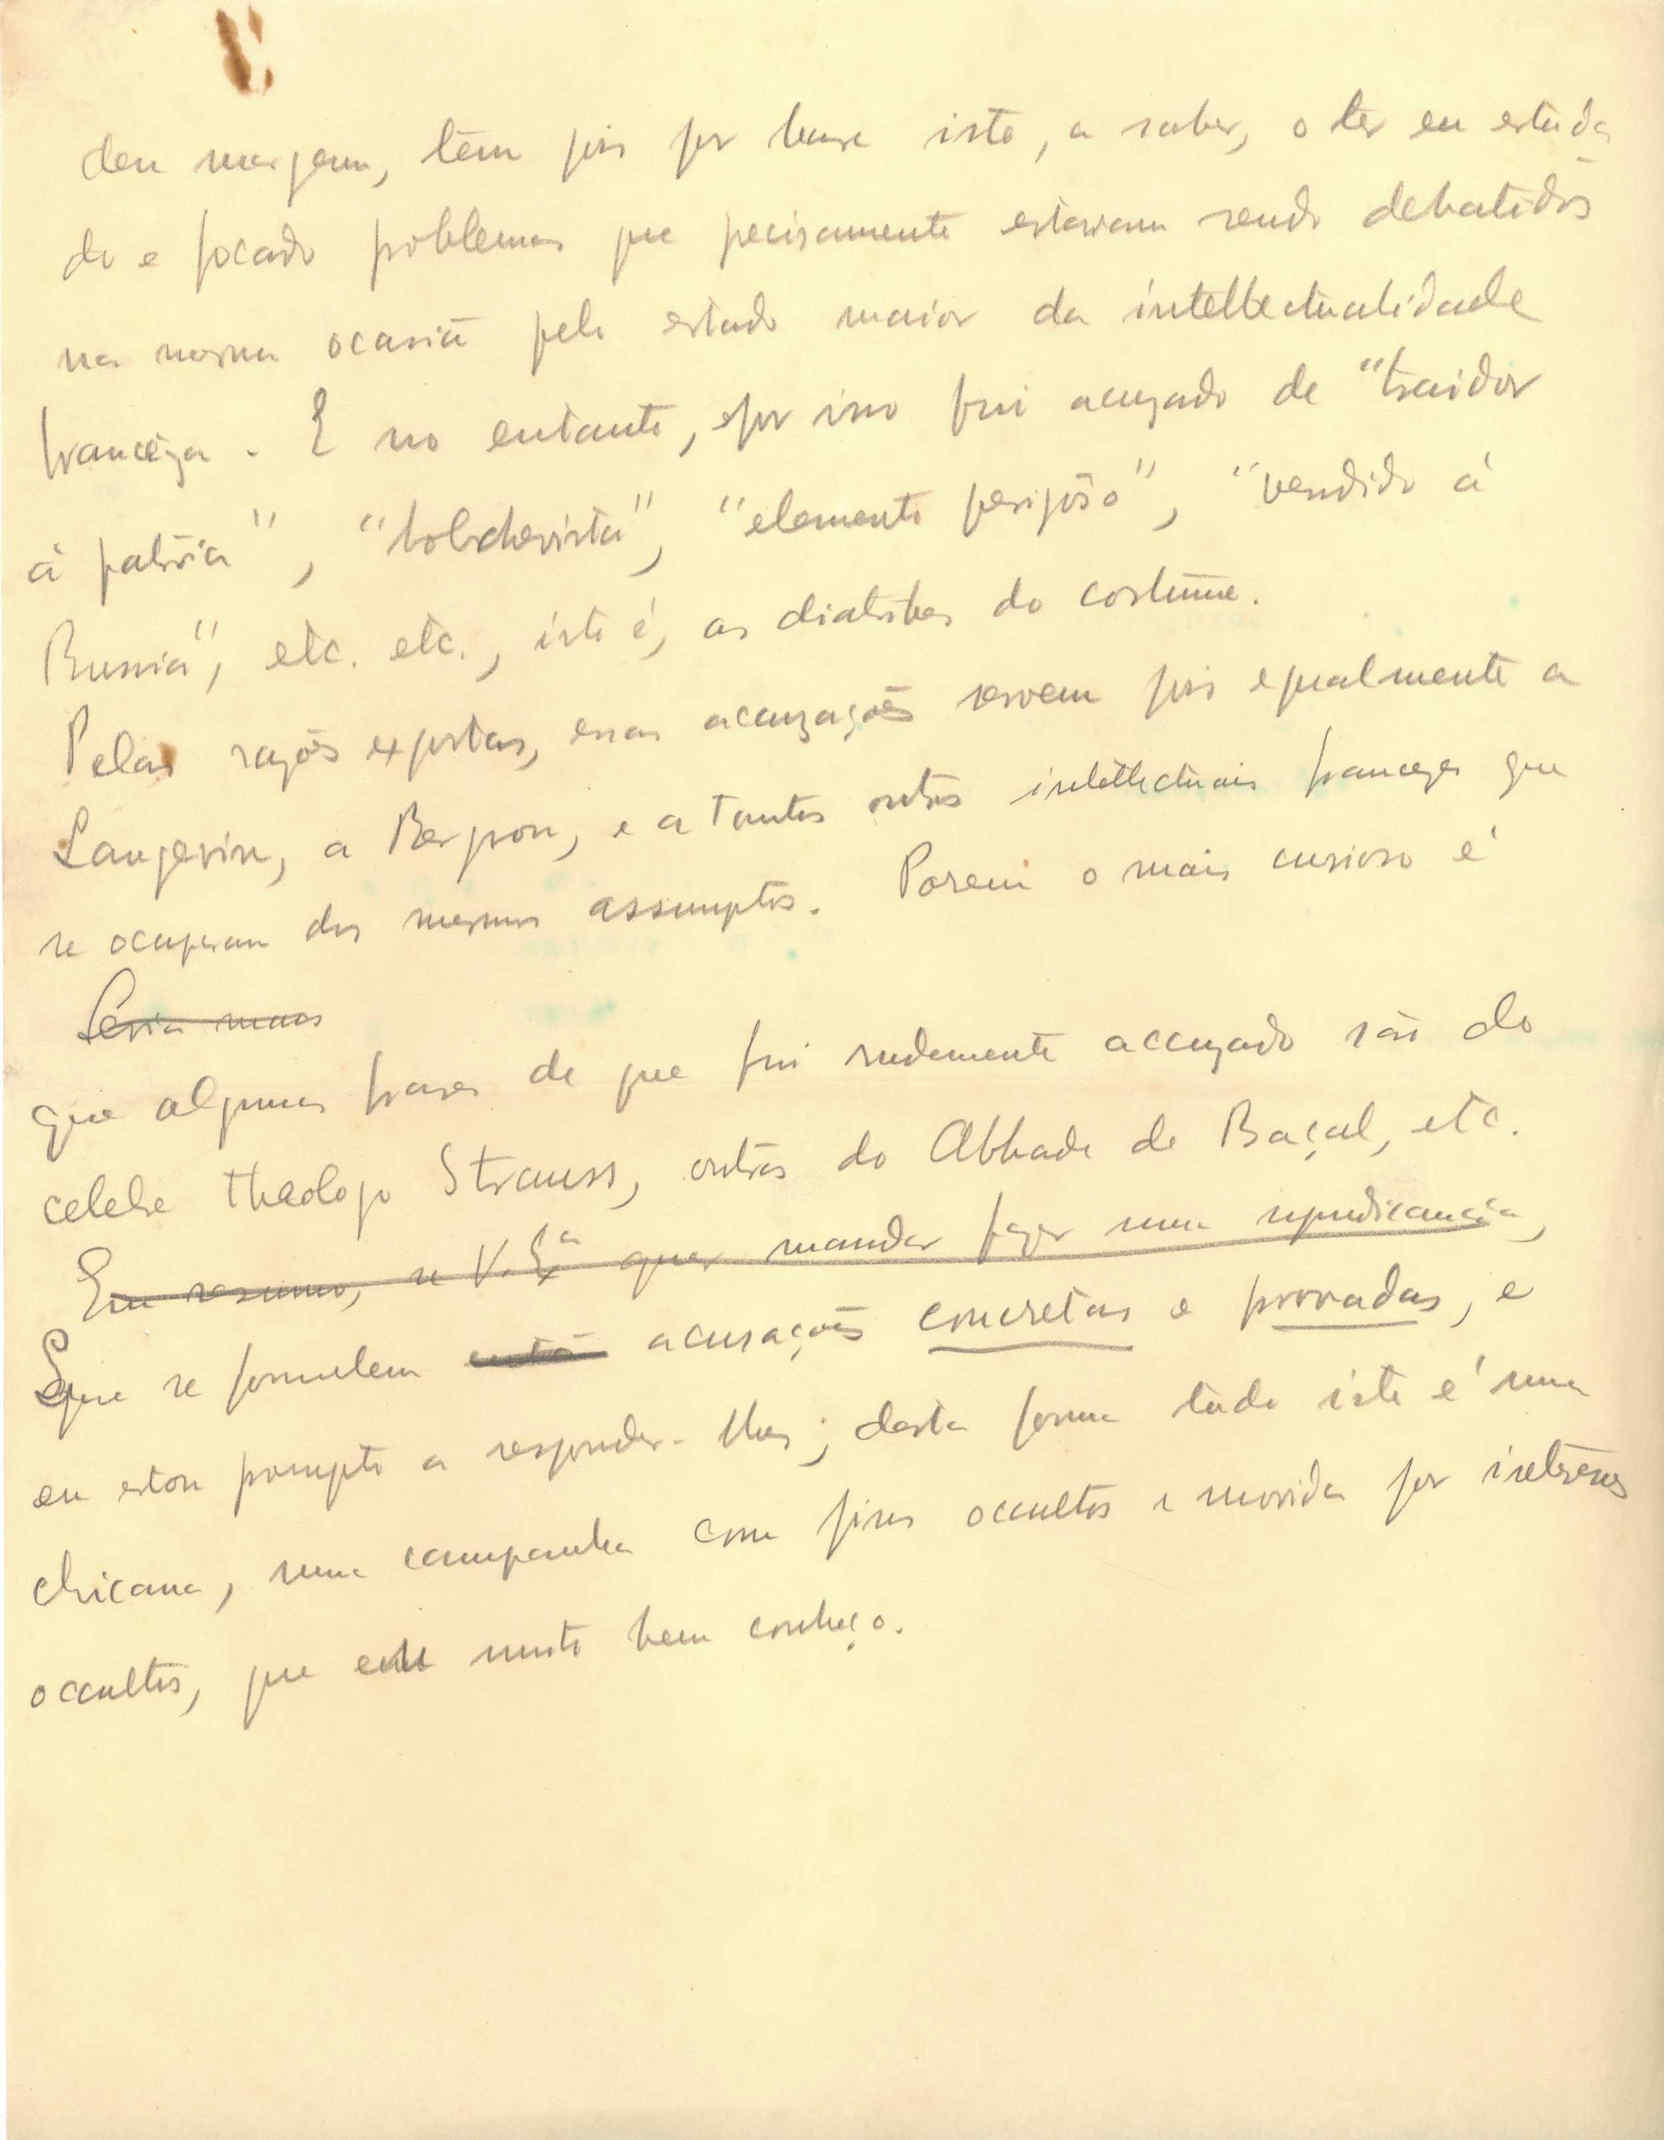 deu margem, têm pois por base isto, a saber, o ter eu estuda
do e focado problemas que precisamente estavam sendo debatidos
na mesma ocasião pelo estado maior da intellectualidade
francêza. E no entanto, por isso fui acuzado de "traidor
á patria", "bolchevista", "elemento perigôso", "vendido á
Russia", etc. etc., isto é, as diatribes do costume.
Pelas razões expostas, essas acuzações servem pois egualmente a
Langevin, a Bergson, e a tantos outros intellectuais francezes que
se ocuparam dos mesmos assumptos. Porem o mais curioso é
Seria mais
que algumas frases de que fui rudemente accuzado são do
celebre theologo Strauss, outras do Abbade de Baçal, etc.
Em resumo, se V. Exª quer mandar fazer uma syndicancia,
Que se formulem então acusações concretas e provadas, e
eu estou prompto a responder-lhes; desta forma tudo isto é uma
chicana, uma campanha com fins occultos e movida por interesses
occultos, que eu muito bem conheço.